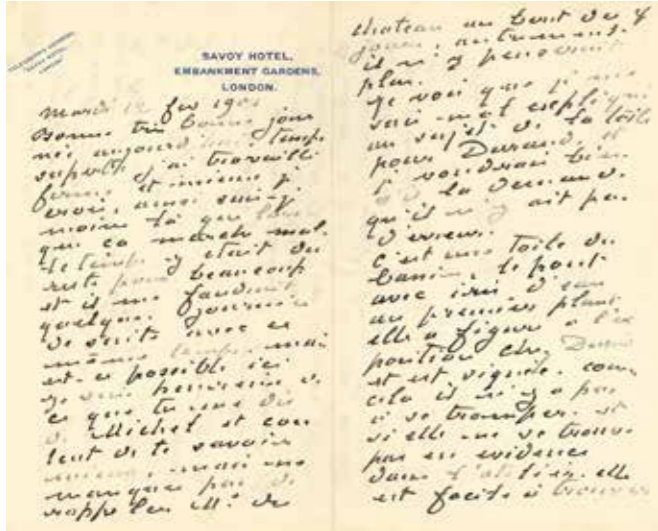 SAVOY HOTEL,
EMBANKMENT GARDENS,
LONDON.
mardi 12 fev 1901
Bonne très bonne journée aujourd'hui temps
superbe j'ai travaillé
ferme et mieux je
crois, aussi suis-je
moins là que lorsque ça marche mal.
le temps y était du
reste pour beaucoup
et il me faudrait
quelques journées
de suite avec ce
même temps mais
est-ce possible ici
je suis heureuse de
ce que tu me dis
de Michel et content de te savoir
mieux, mais ne
manque pas de
rappeler M. de
chateau au bout de 8
jours, autrement
il n'y penserait
plus.
Je vois que je me
suis mal expliqué
au sujet de la toile
pour Durand et
je voudrais bien
qu'il n'y ait pas
d'erreur.
c'est une toile du
bassin, le pont
avec iris d'eau
au premier plan
elle a figuré à l'exposition chez Durand
et est signée. comme
cela il n'y a pas
à se tromper. et
si elle ne se trouve
pas en evidence
dans l'atelier, elle
est facile à trouver